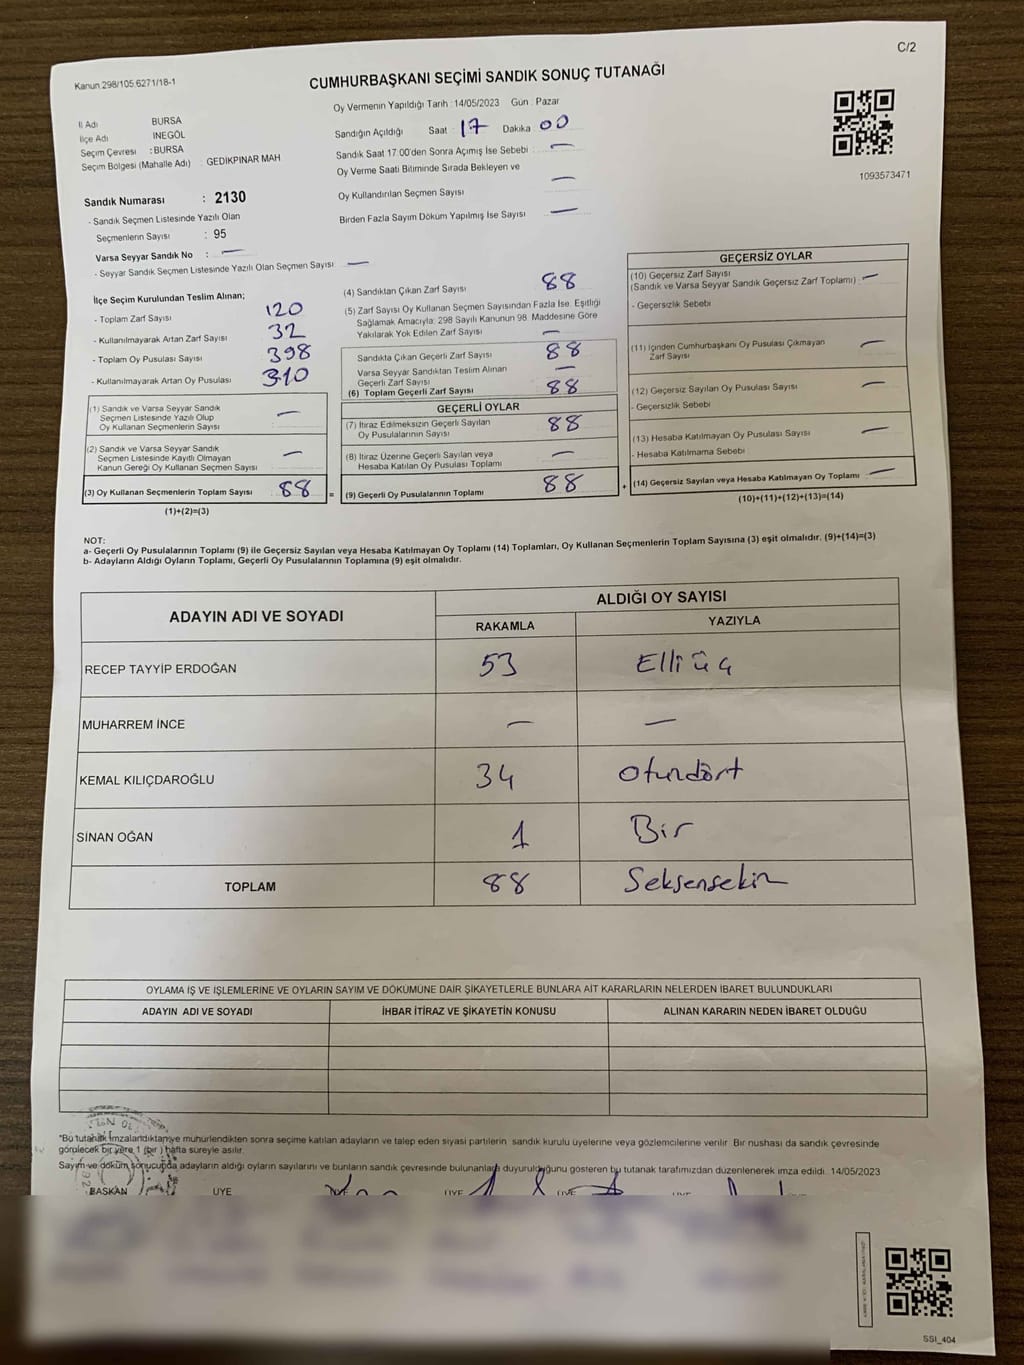 C/2
Kanun 298/105.6271/18-1
CUMHURBAŞKANI SEÇİMİ SANDIK SONUÇ TUTANAĞI
İl Adı BURSA
İlçe Adı INEGÖL
Seçim Çevresi : BURSA
Seçim Bölgesi (Mahalle Adı) : GEDİKPINAR MAH
Sandık Numarası : 2130
- Sandık Seçmen Listesinde Yazılı Olan
Seçmenlerin Sayısı : 95
Varsa Seyyar Sandık No : —
- Seyyar Sandık Seçmen Listesinde Yazılı Olan Seçmen Sayısı —
Oy Vermenin Yapıldığı Tarih : 14/05/2023 Gün : Pazar
Sandığın Açıldığı Saat : 17 Dakika 00
Sandık Saat 17.00'den Sonra Açımış İse Sebebi : —
Oy Verme Saati Bitiminde Sırada Bekleyen ve
Oy Kullandırılan Seçmen Sayısı —
Birden Fazla Sayım Döküm Yapılmış İse Sayısı —
1093573471
İlçe Seçim Kurulundan Teslim Alınan;
- Toplam Zarf Sayısı : 120
- Kullanılmayarak Artan Zarf Sayısı : 32
- Toplam Oy Pusulası Sayısı : 398
- Kullanılmayarak Artan Oy Pusulası : 310
(1) Sandık ve Varsa Seyyar Sandık
Seçmen Listesinde Yazılı Olup
Oy Kullanan Seçmenlerin Sayısı : —
(2) Sandık ve Varsa Seyyar Sandık
Seçmen Listesinde Kayıtlı Olmayan
Kanun Gereği Oy Kullanan Seçmen Sayısı : —
(3) Oy Kullanan Seçmenlerin Toplam Sayısı : 88 =
(1)+(2)=(3)
(4) Sandıktan Çıkan Zarf Sayısı : 88
(5) Zarf Sayısı Oy Kullanan Seçmen Sayısından Fazla İse, Eşitliği
Sağlamak Amacıyla; 298 Sayılı Kanunun 98. Maddesine Göre
Yakılarak Yok Edilen Zarf Sayısı : —
Sandıkta Çıkan Geçerli Zarf Sayısı : 88
Varsa Seyyar Sandıktan Teslim Alınan
Geçerli Zarf Sayısı : —
(6) Toplam Geçerli Zarf Sayısı : 88
GEÇERLİ OYLAR
(7) İtiraz Edilmeksizin Geçerli Sayılan
Oy Pusulalarının Sayısı : 88
(8) İtiraz Üzerine Geçerli Sayılan veya
Hesaba Katılan Oy Pusulası Toplamı : —
(9) Geçerli Oy Pusulalarının Toplamı : 88 +
GEÇERSİZ OYLAR
(10) Geçersiz Zarf Sayısı
(Sandık ve Varsa Seyyar Sandık Geçersiz Zarf Toplamı) : —
- Geçersizlik Sebebi
(11) İçinden Cumhurbaşkanı Oy Pusulası Çıkmayan
Zarf Sayısı : —
(12) Geçersiz Sayılan Oy Pusulası Sayısı : —
- Geçersizlik Sebebi
(13) Hesaba Katılmayan Oy Pusulası Sayısı : —
- Hesaba Katılmama Sebebi
(14) Geçersiz Sayılan veya Hesaba Katılmayan Oy Toplamı : —
(10)+(11)+(12)+(13)=(14)
NOT:
a- Geçerli Oy Pusulalarının Toplamı (9) ile Geçersiz Sayılan veya Hesaba Katılmayan Oy Toplamı (14) Toplamları, Oy Kullanan Seçmenlerin Toplam Sayısına (3) eşit olmalıdır. (9)+(14)=(3)
b- Adayların Aldığı Oyların Toplamı, Geçerli Oy Pusulalarının Toplamına (9) eşit olmalıdır.
ADAYIN ADI VE SOYADI ALDIĞI OY SAYISI
RAKAMLA YAZIYLA
RECEP TAYYİP ERDOĞAN 53 Elli üç
MUHARREM İNCE — —
KEMAL KILIÇDAROĞLU 34 Otuzdört
SİNAN OĞAN 1 Bir
TOPLAM 88 Seksensekiz
OYLAMA İŞ VE İŞLEMLERINE VE OYLARIN SAYIM VE DÖKÜMÜNE DAİR ŞİKAYETLERLE BUNLARA AİT KARARLARIN NELERDEN İBARET BULUNDUKLARI
ADAYIN ADI VE SOYADI İHBAR İTİRAZ VE ŞİKAYETİN KONUSU ALINAN KARARIN NEDEN İBARET OLDUĞU
*Bu tutanak imzalandıktan ve mühürlendikten sonra seçime katılan adayların ve talep eden siyasi partilerin sandık kurulu üyelerine veya gözlemcilerine verilir. Bir nushası da sandık çevresinde
görülecek bir yere 1 (bir ) hafta süreyle asılır.
Sayım ve döküm sonucunda adayların aldığı oyların sayılarını ve bunların sandık çevresinde bulunanlara duyurulduğunu gösteren bu tutanak tarafımızdan düzenlenerek imza edildi. 14/05/2023
BAŞKAN ÜYE ÜYE ÜYE ÜYE ÜYE
SSI_404